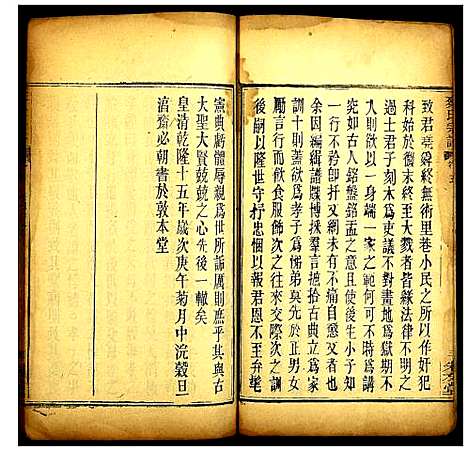 致君堯舜終無術里巷小民之所以作奸犯
科始於微末終至大戮者皆緣法律不明則
過士君子刻木爲吏議不對畫地爲獄勢不
入則以一身端一家之範何可不時爲講
究如古人銘盤銘盂之意且使後生小子知
有一不矜卽扞又網未有不痛自懲艾者也
余因編緝譜牒博採羣言摭拾古典立爲家
訓十則蓋欲爲孝子爲悌弟莫先於正男女
勵言行而飲食服飾次之往來交際次之訓
後嗣以隆世守抒忠悃以報君恩不至弁髦
憲典虧體辱親爲世所訴厲則庶乎其與古
大聖大賢兢兢之心先後一轍矣
皇清乾隆十五年歲次庚午菊月中浣穀旦
濟齋必朝書於敦本堂